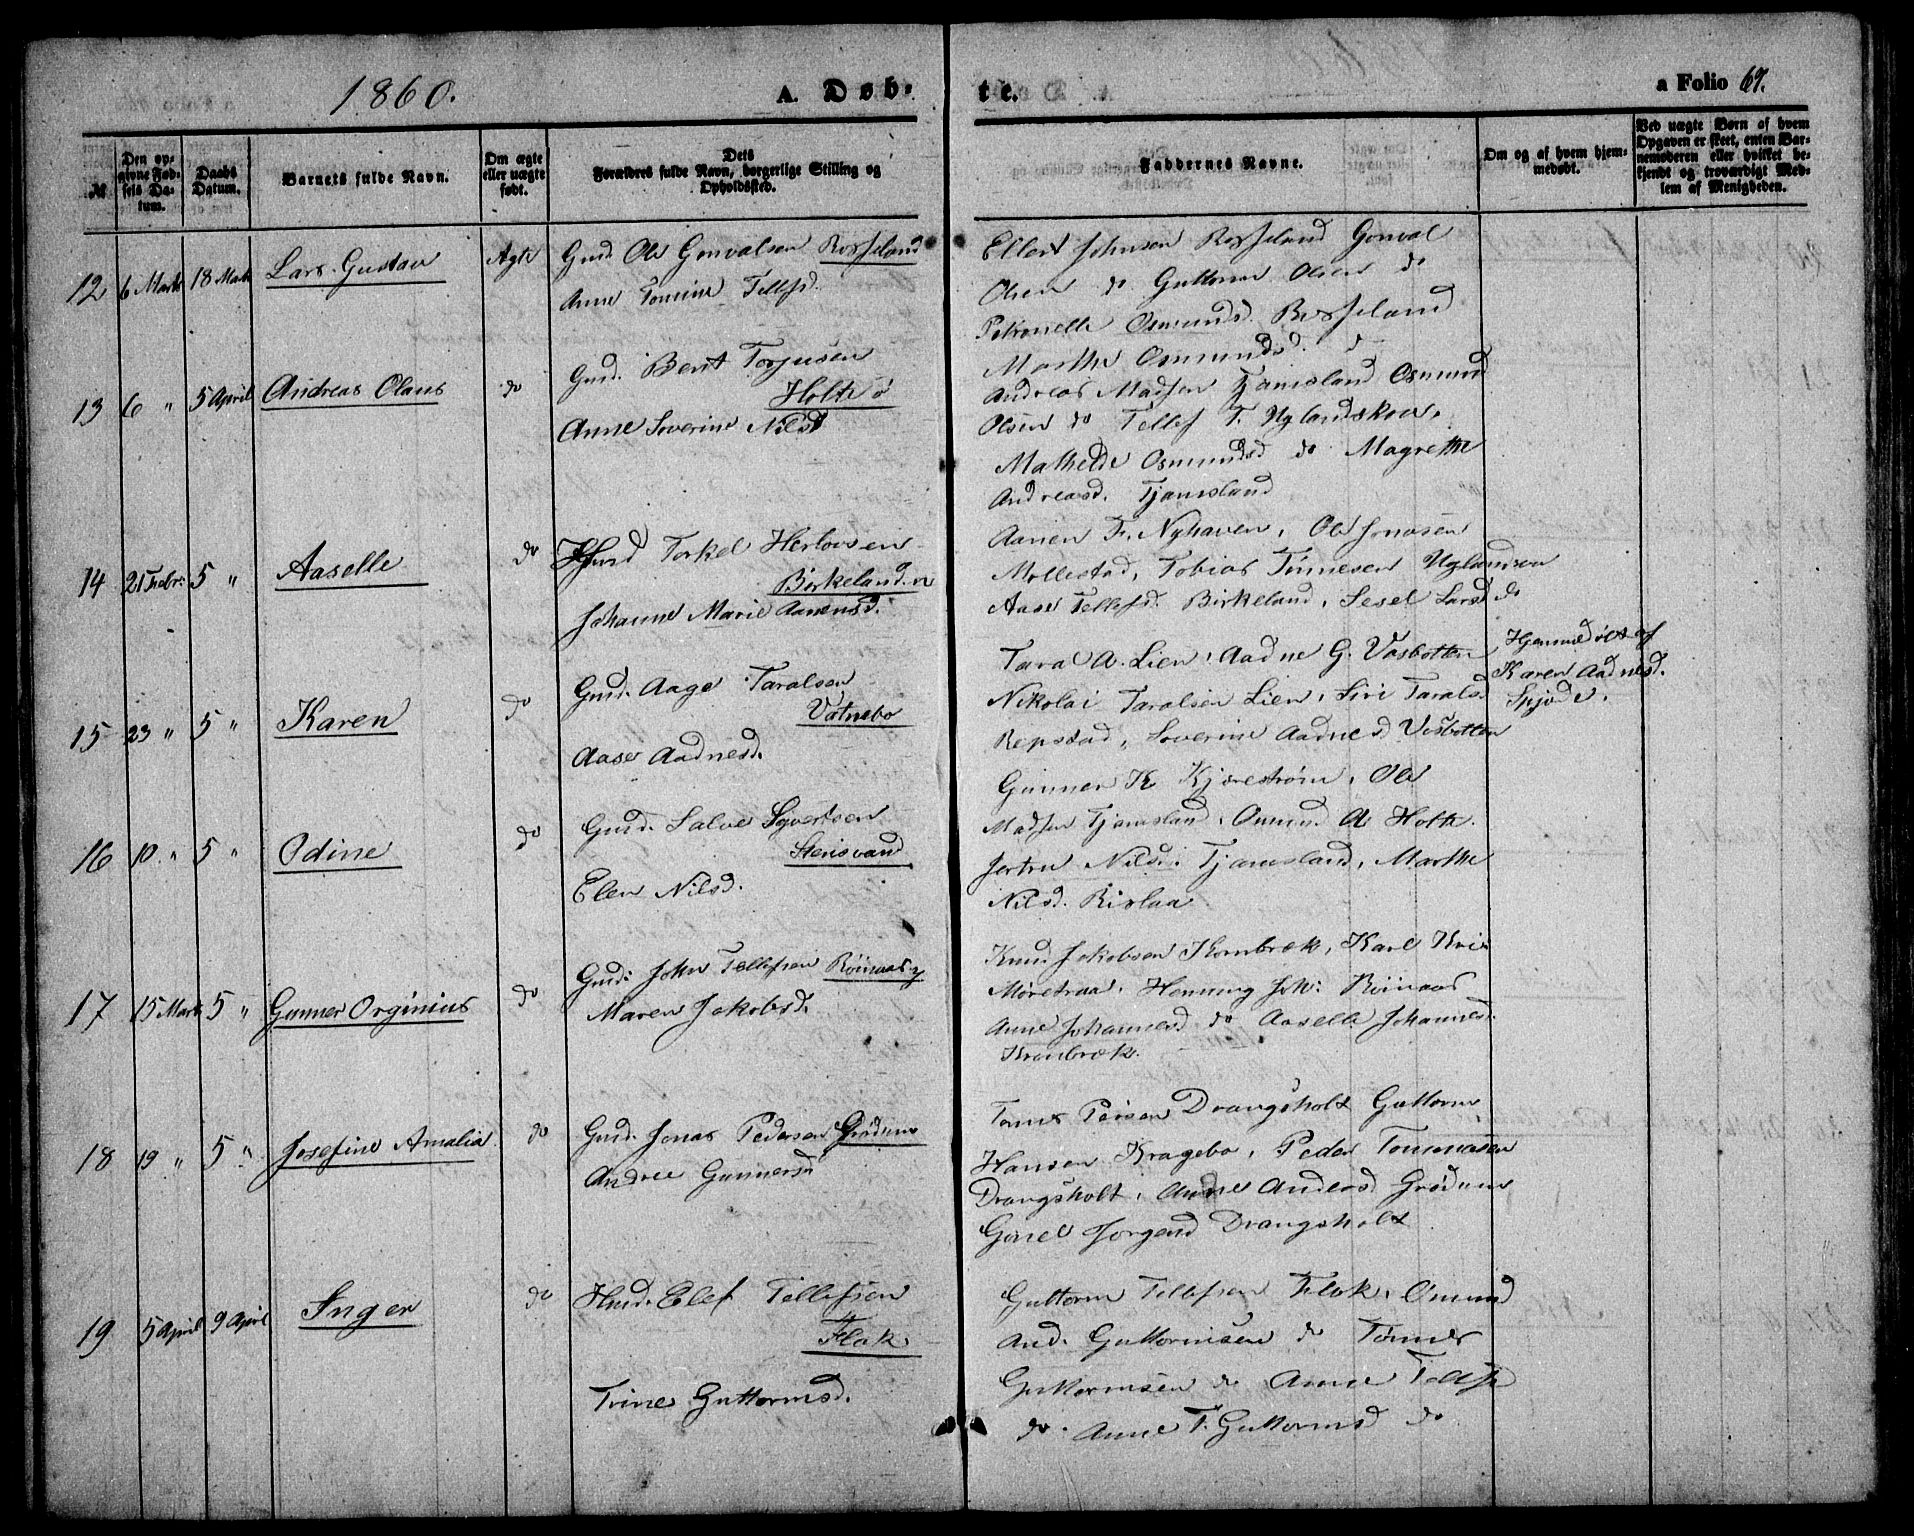 1860.
A. Døb-
te.
a Folio 67.
№
Den op-
givne Fød-
sels Da-
tum.
Daabs
Datum.
Barnets fulde Navn.
Om ægte
eller uægte
født.
Dets
Forældres fulde Navn, borgerlige Stilling og
Opholdssted.
Faddernes Navne.
Om og af hvem hjem-
medøbt.
Ved uægte Børn af hvem
Opgaven er skeet, enten Bar-
nemoderen eller hvilket be-
kjendt og troværdigt Med-
lem af Menigheden.
12 6 Marts 18 Marts Lars Gustav Ægte
Gmd. Ole Gonvalsen Rosseland
Anne Tomine Tellefsd.
Ellert Johnsen Rosseland Gonval
Olsen do Guttorm Olsen do
Petronelle Osmundsd. Rosseland
Marthe Osmundsd. do
13 6 " 5 April Andreas Olaus do
Gmd. Bent Torjusen
Holte ø
Anne Severine Nilsd
Andreas Madsen Tjamsland Osmund
Olsen do Tellef T. Uglandskov.
Mathelde Osmundsd do Magrethe
Andreasd. Tjamsland
14 21 Febr: 5 " Aaselle do
Hmd Torkel Herlovsen
Birkeland
Johanne Marie Aanensd.
Aanen F. Nyhaven, Ole Jonasen
Mollestad, Tobias Tønnesen
Aase Tellefsd. Birkeland, Sesel Larsd do
15 23 " 5 " Karen do
Gmd. Aage Taralsen
Vatnebo
Aase Aadnesd.
Taral A. Lien, Aadne G. Vasbotten
Nikolai Taralsen Lien, Siri Taralsd
Repstad, Severine Aadnesd Vasbotten
Hjemmedøbt af
Karen Aadnesd.
16 10 " 5 " Odine do
Gmd. Salve Syvertsen
Stensvand
Elen Nilsd.
Gunner K Kjærestrøm, Ole
Madsen Tjamsland, Osmund A Holte.
Nilsd. Tjamsland, Marthe
Nilsd. Rislaa
17 15 Marts 5 " Gunner Orginius do
Gmd. John Tellefsen Røinaas
Maren Jakobsd.
Knud Jakobsen Kornbrek, Karl
Henning Joh: Røinaas
Anne Johannesd do Aaselle Johannesd.
18 19 " 5 " Josefine Amalia do
Gmd. Jonas Pedersen Grødum
Andree Gunnersd
Drangsholt Guttorm
Hansen Kragebo, Peder Tommasen
Drangsholt, Anne Andersd Grødum
Gonel Jorgensd Drangsholt
19 5 April 9 April Inger do
Hmd. Elef Tellefsen
Flak.
Trine Guttormsd.
Guttorm Tellefsen Flak, Osmund
And. Guttormsen do Tønnes
Guttormsen do Anne Tellefsd
do. Anne T. Guttormsd do